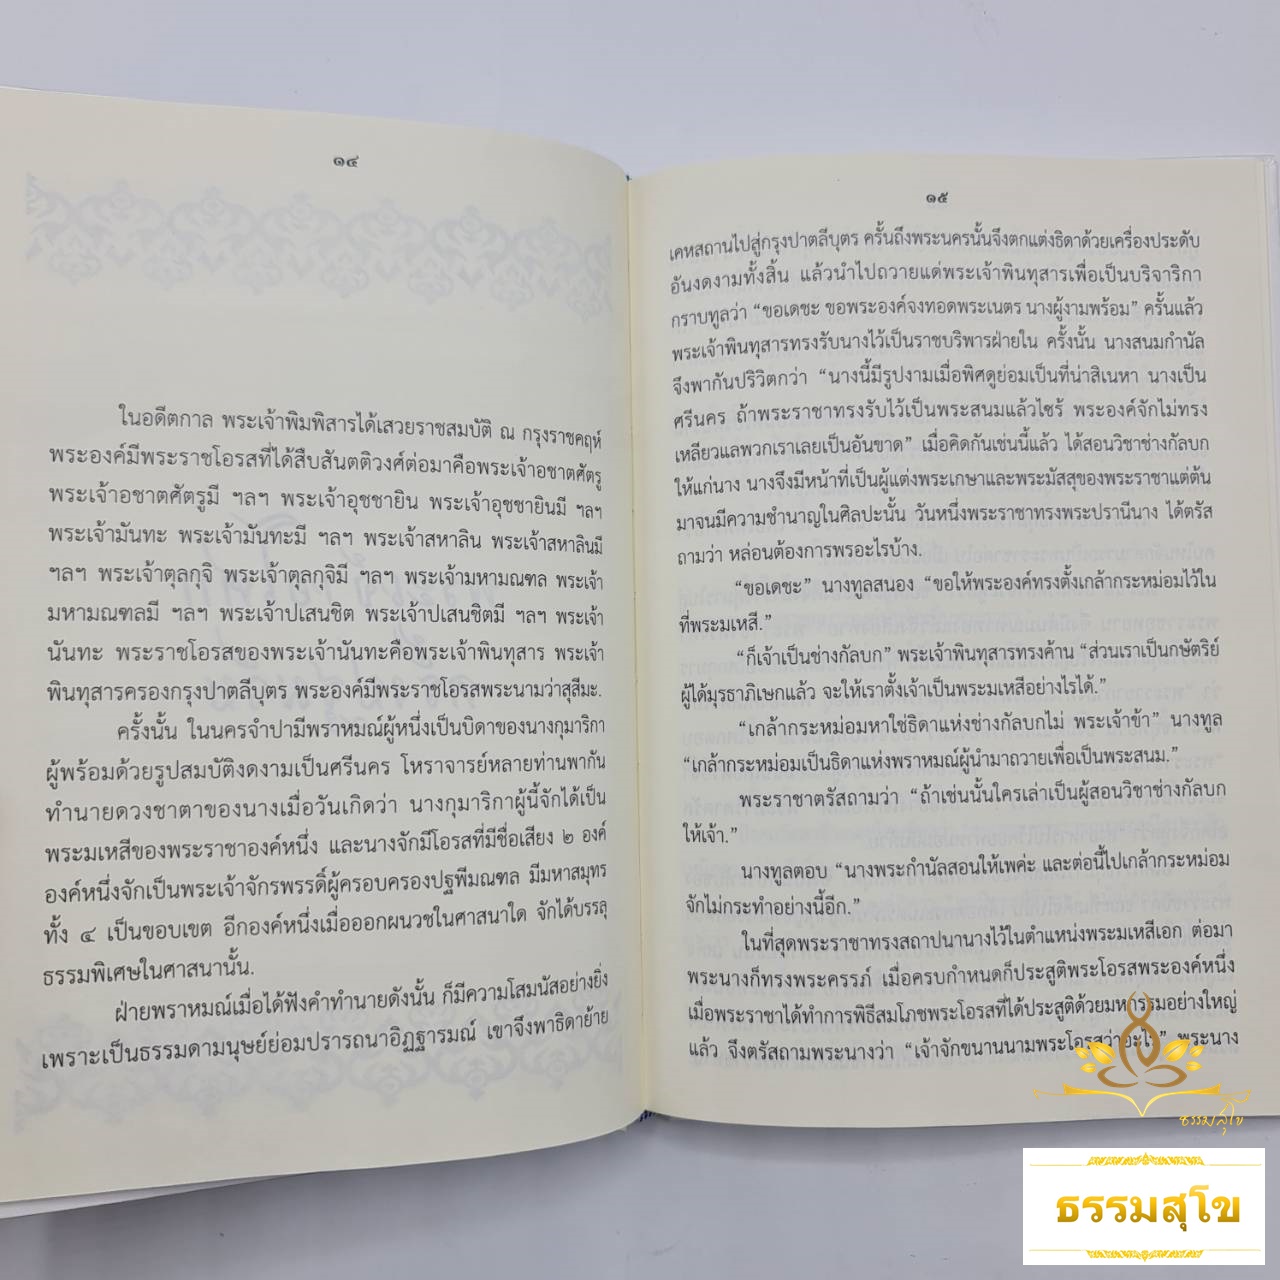 ๑๔
ในอดีตกาล พระเจ้าพิมพิสารได้เสวยราชสมบัติ ณ กรุงราชคฤห์
พระองค์มีพระราชโอรสที่ได้สืบสันตติวงศ์ต่อมาคือพระเจ้าอชาตศัตรู
พระเจ้าอชาตศัตรูมี ฯลฯ พระเจ้าอุชชายิน พระเจ้าอุชชายินมี ฯลฯ
พระเจ้ามันทะ พระเจ้ามันทะมี ฯลฯ พระเจ้าสหาลิน พระเจ้าสหาลินมี
ฯลฯ พระเจ้าตุลกุจิ พระเจ้าตุลกุจิมี ฯลฯ พระเจ้ามหามณฑล พระเจ้า
มหามณฑลมี ฯลฯ พระเจ้าปเสนชิต พระเจ้าปเสนชิตมี ฯลฯ พระเจ้า
นันทะ พระราชโอรสของพระเจ้านันทะคือพระเจ้าพินทุสาร พระเจ้า
พินทุสารครองกรุงปาตลีบุตร พระองค์มีพระราชโอรสพระนามว่าสุสีมะ.
ครั้งนั้น ในนครจำปามีพราหมณ์ผู้หนึ่งเป็นบิดาของนางกุมาริกา
ผู้พร้อมด้วยรูปสมบัติงดงามเป็นศรีนคร โหราจารย์หลายท่านพากัน
ทำนายดวงชาตาของนางเมื่อวันเกิดว่า นางกุมาริกาผู้นี้จักได้เป็น
พระมเหสีของพระราชาองค์หนึ่ง และนางจักมีโอรสที่มีชื่อเสียง ๒ องค์
องค์หนึ่งจักเป็นพระเจ้าจักรพรรดิ์ผู้ครอบครองปฐพีมณฑล มีมหาสมุทร
ทั้ง ๔ เป็นขอบเขต อีกองค์หนึ่งเมื่อออกผนวชในศาสนาใด จักได้บรรลุ
ธรรมพิเศษในศาสนานั้น.
ฝ่ายพราหมณ์เมื่อได้ฟังคำทำนายดังนั้น ก็มีความโสมนัสอย่างยิ่ง
เพราะเป็นธรรมดามนุษย์ย่อมปรารถนาอิฏฐารมณ์ เขาจึงพาธิดาย้าย
๑๕
เคหสถานไปสู่กรุงปาตลีบุตร ครั้นถึงพระนครนั้นจึงตกแต่งธิดาด้วยเครื่องประดับ
อันงดงามทั้งสิ้น แล้วนำไปถวายแด่พระเจ้าพินทุสารเพื่อเป็นบริจาริกา
กราบทูลว่า “ขอเดชะ ขอพระองค์จงทอดพระเนตร นางผู้งามพร้อม” ครั้นแล้ว
พระเจ้าพินทุสารทรงรับนางไว้เป็นราชบริพารฝ่ายใน ครั้งนั้น นางสนมกำนัล
จึงพากันปริวิตกว่า “นางนี้มีรูปงามเมื่อพิศดูย่อมเป็นที่น่าสิเนหา นางเป็น
ศรีนคร ถ้าพระราชาทรงรับไว้เป็นพระสนมแล้วไซร้ พระองค์จักไม่ทรง
เหลียวแลพวกเราเลยเป็นอันขาด” เมื่อคิดกันเช่นนี้แล้ว ได้สอนวิชาช่างกัลบก
ให้แก่นาง นางจึงมีหน้าที่เป็นผู้แต่งพระเกษาและพระมัสสุของพระราชาแต่ต้น
มาจนมีความชำนาญในศิลปะนั้น วันหนึ่งพระราชาทรงพระปรานีนาง ได้ตรัส
ถามว่า หล่อนต้องการพรอะไรบ้าง.
“ขอเดชะ” นางทูลสนอง “ขอให้พระองค์ทรงตั้งเกล้ากระหม่อมไว้ใน
ที่พระมเหสี.”
“ก็เจ้าเป็นช่างกัลบก” พระเจ้าพินทุสารทรงค้าน “ส่วนเราเป็นกษัตริย์
ผู้ได้มุรธาภิเษกแล้ว จะให้เราตั้งเจ้าเป็นพระมเหสีอย่างไรได้.”
“เกล้ากระหม่อมหาใช่ธิดาแห่งช่างกัลบกไม่ พระเจ้าข้า” นางทูล
“เกล้ากระหม่อมเป็นธิดาแห่งพราหมณ์ผู้นำมาถวายเพื่อเป็นพระสนม.”
พระราชาตรัสถามว่า “ถ้าเช่นนั้นใครเล่าเป็นผู้สอนวิชาช่างกัลบก
ให้เจ้า.”
นางทูลตอบ “นางพระกำนัลสอนให้เพค่ะ และต่อนี้ไปเกล้ากระหม่อม
จักไม่กระทำอย่างนี้อีก.”
ในที่สุดพระราชาทรงสถาปนานางไว้ในตำแหน่งพระมเหสีเอก ต่อมา
พระนางก็ทรงพระครรภ์ เมื่อครบกำหนดก็ประสูติพระโอรสพระองค์หนึ่ง
เมื่อพระราชาได้ทำการพิธีสมโภชพระโอรสที่ได้ประสูติด้วยมหกรรมอย่างใหญ่
แล้ว จึงตรัสถามพระนางว่า “เจ้าจักขนานนามพระโอรสว่าอะไร” พระนาง
ธรรมสุโข
ธรรมสุโข